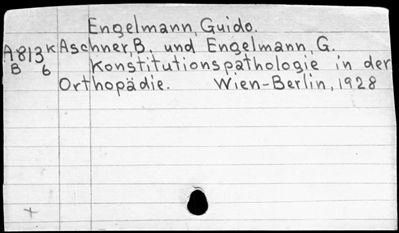 Engelmann, Guido.
A813K Aschner, B. und Engelmann, G.
B 6 Konstitutionspathologie in der
Orthopädie. Wien-Berlin, 1928
+